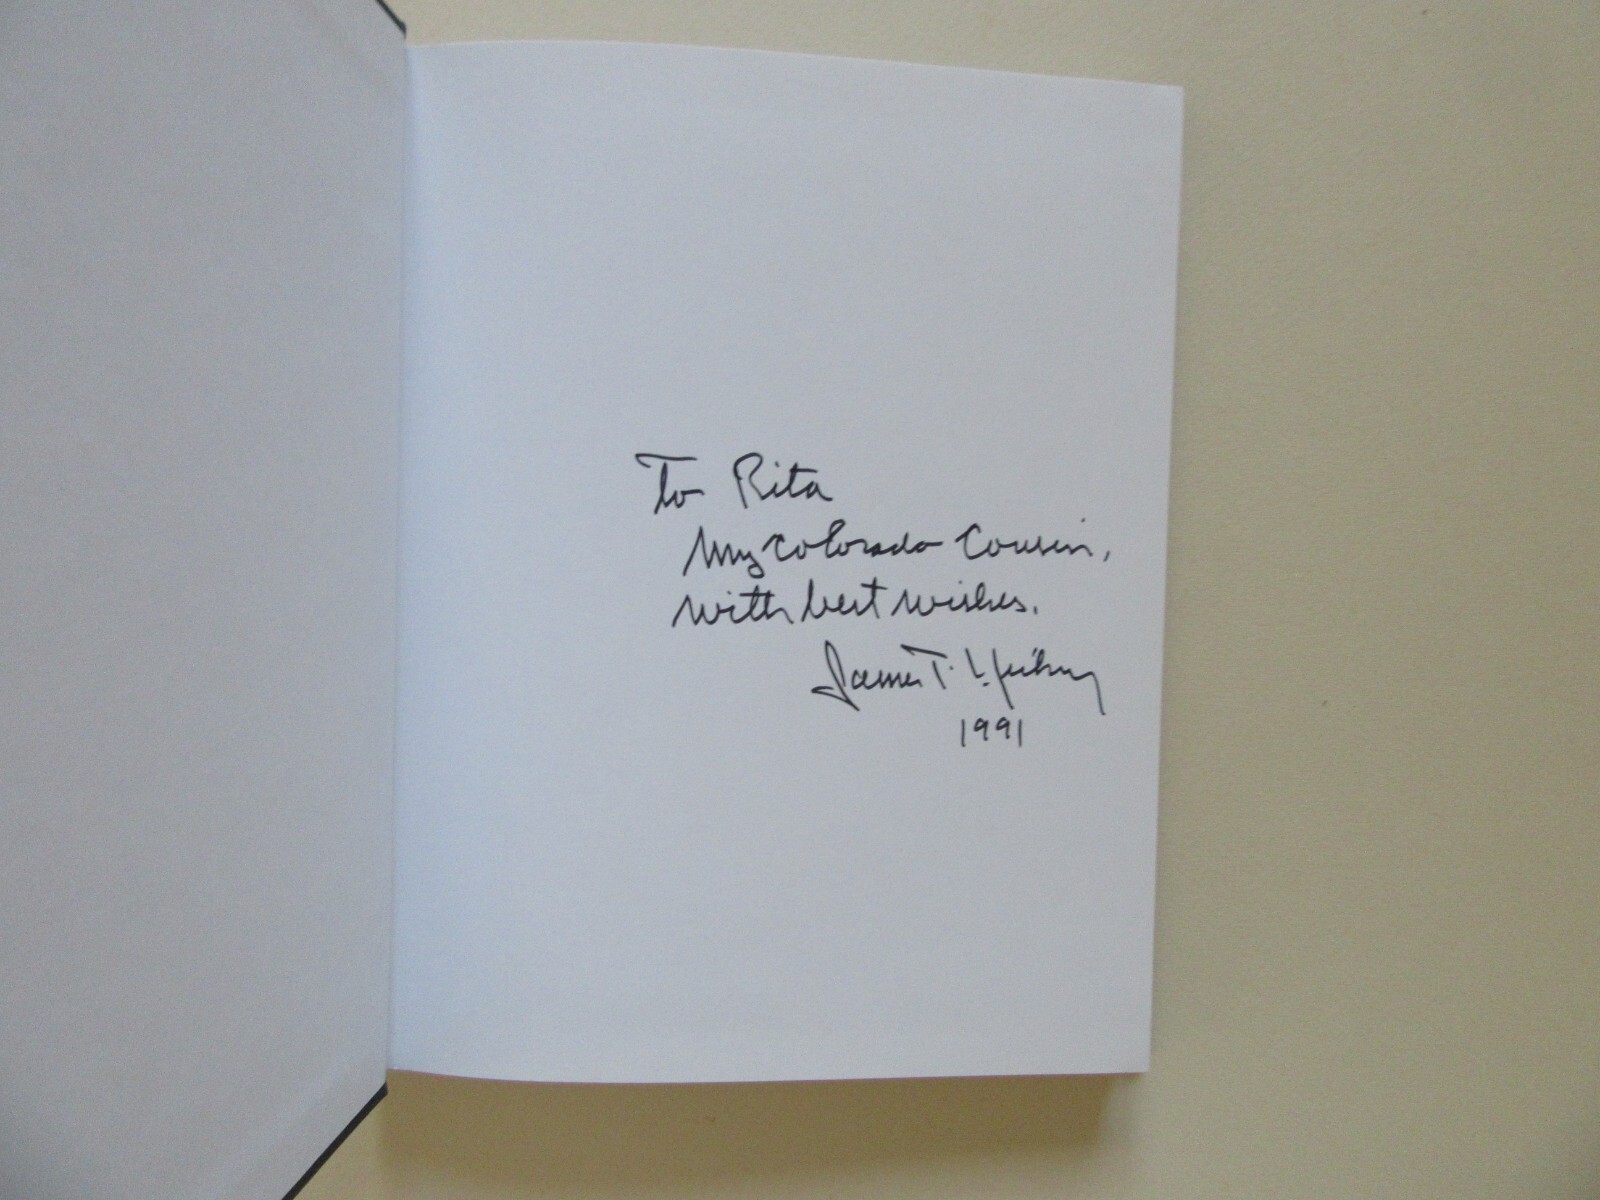 To Rita
My Colorado Cousin,
with best wishes.
James T.
1991